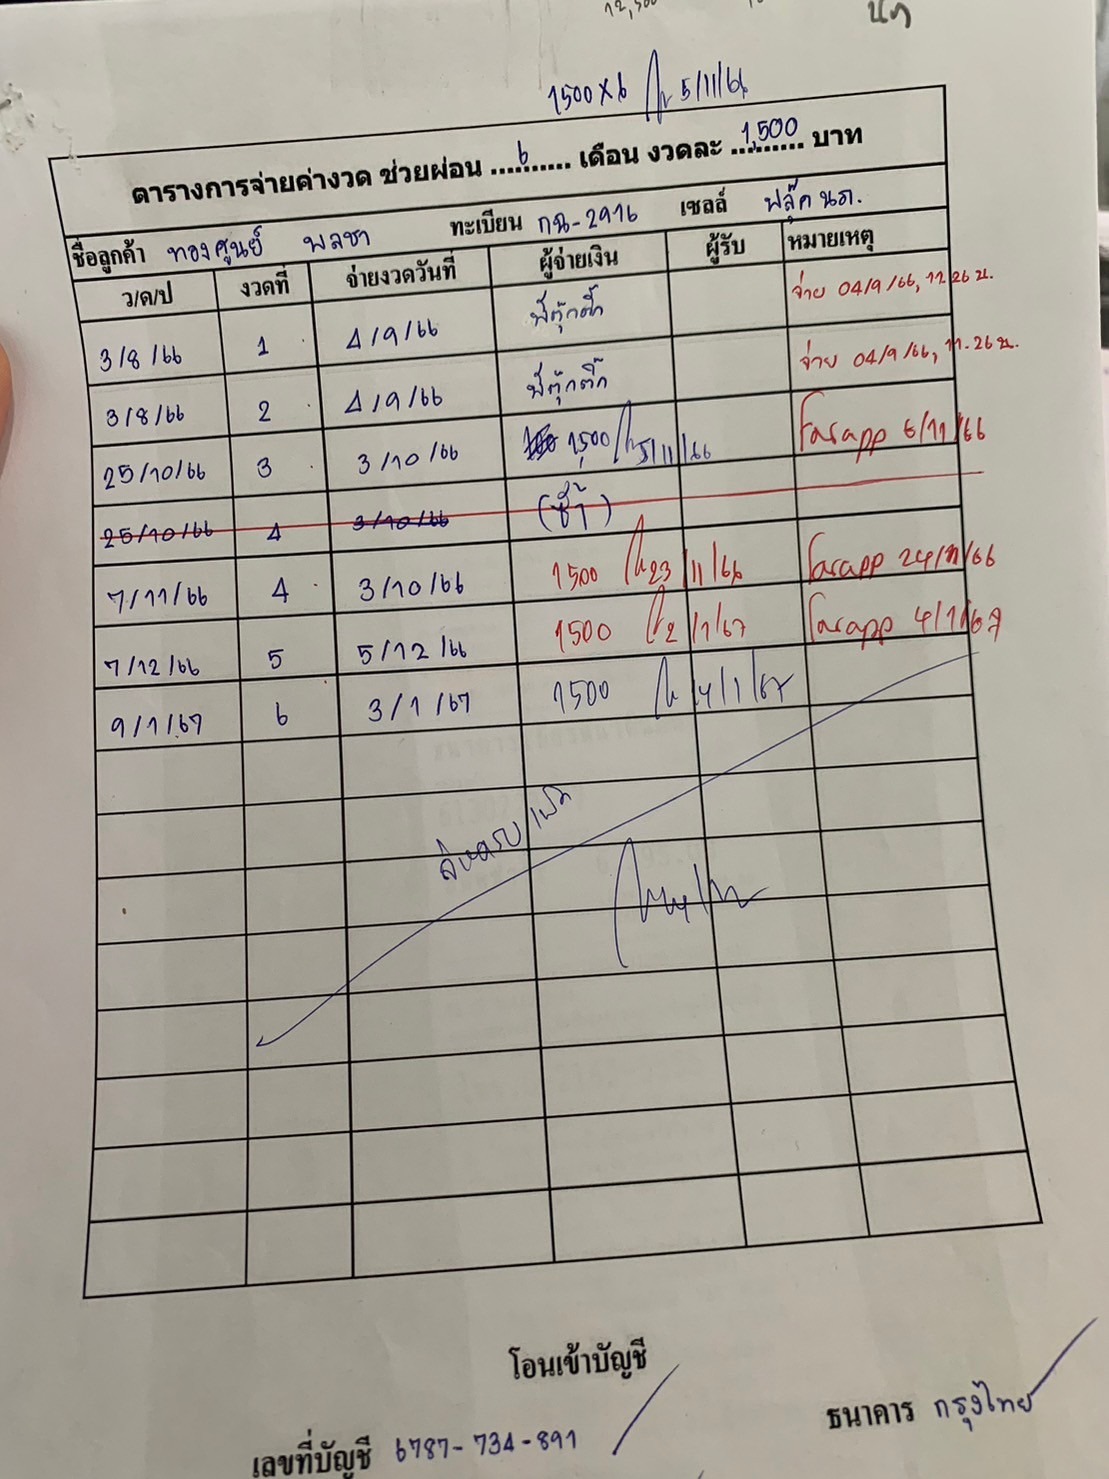 นก
1500 x 6 5/11/66
ตารางการจ่ายค่างวด ช่วยผ่อน ....6...... เดือน งวดละ ..1,500.. บาท
ชื่อลูกค้า ทองศูนย์ พลชา ทะเบียน กฉ-2916 เซลล์ ฟลุ๊ค นภ.
ว/ด/ป งวดที่ จ่ายงวดวันที่ ผู้จ่ายเงิน ผู้รับ หมายเหตุ
3/8/66 1 4/9/66 พี่ตุ๊กติ๊ก จ่าย 04/9/66, 11.26 น.
3/8/66 2 4/9/66 พี่ตุ๊กติ๊ก จ่าย 04/9/66, 11.26 น.
25/10/66 3 3/10/66 1,500 5/11/66 โอนapp 6/11/66
25/10/66 4 3/10/66 (ซ้ำ)
7/11/66 4 3/10/66 1500 23/11/66 โอนapp 24/11/66
7/12/66 5 5/12/66 1500 2/1/67 โอนapp 4/1/67
9/1/67 6 3/1/67 1500 14/1/67
โอนเข้าบัญชี
เลขที่บัญชี 6787-734-891 ธนาคาร กรุงไทย